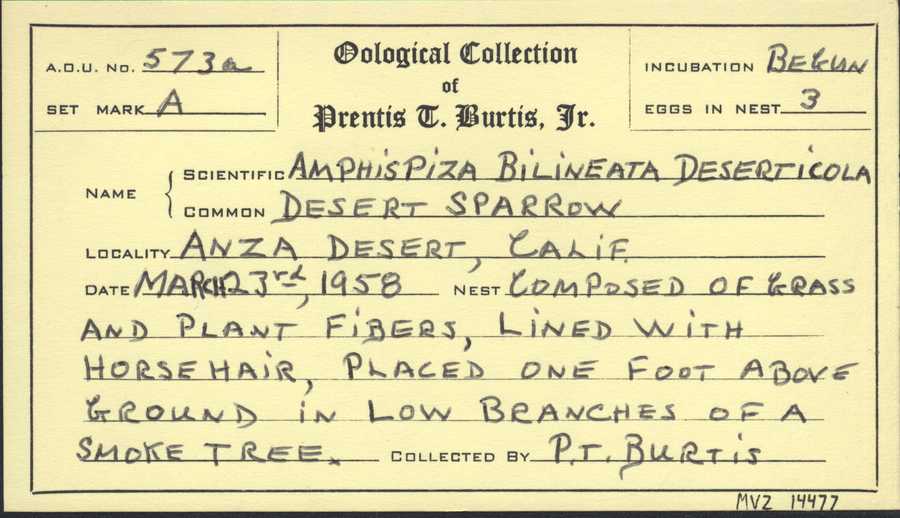 A.O.U. No. 573a
Oological Collection
of
Prentis T. Burtis, Jr.
INCUBATION BEGUN
SET MARK A
EGGS IN NEST 3
NAME { SCIENTIFIC AMPHISPIZA BILINEATA DESERTICOLA
COMMON DESERT SPARROW
LOCALITY ANZA DESERT, CALIF.
DATE MARCH 23rd, 1958 NEST COMPOSED OF GRASS
AND PLANT FIBERS, LINED WITH
HORSE HAIR, PLACED ONE FOOT ABOVE
GROUND IN LOW BRANCHES OF A
SMOKE TREE. COLLECTED BY P.T. BURTIS
MVZ 14477